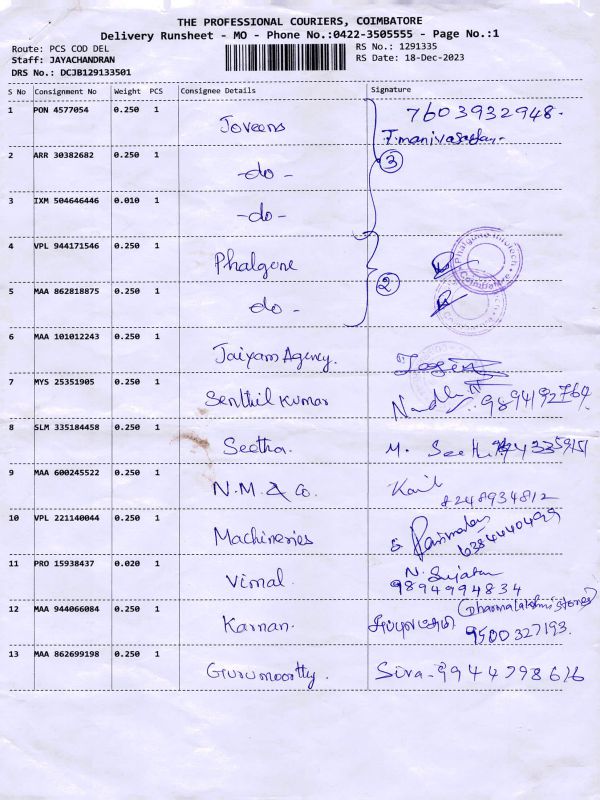 THE PROFESSIONAL COURIERS, COIMBATORE
Delivery Runsheet - MO - Phone No.:0422-3505555 - Page No.:1
Route: PCS COD DEL
Staff: JAYACHANDRAN
DRS No.: DCJB129133501
RS No.: 1291335
RS Date: 18-Dec-2023
S No Consignment No Weight PCS Consignee Details Signature
1 PON 4577054 0.250 1 Joveens 7603932948.
T.manivasagan
2 ARR 30382682 0.250 1 -do- 3
3 IXM 504646446 0.010 1 -do-
4 VPL 944171546 0.250 1 Phalgune
Phalgune Infotech Coimbatore
5 MAA 862818875 0.250 1 do - 2
6 MAA 101012243 0.250 1 Jaiyam Agency.
7 MYS 25351905 0.250 1 Senthil Kumar Nandhi 9894192764
8 SLM 335184458 0.250 1 Seetha. M. Seeth
9 MAA 600245522 0.250 1 N.M. & Co. Kail
8248934812
10 VPL 221140044 0.250 1 Machineries Parimalan
11 PRO 15938437 0.020 1 Vimal. N. Sujatha
9894994834
12 MAA 944066084 0.250 1 Karnan. (Dharmalakshmi Stores)
9500327193.
13 MAA 862699198 0.250 1 Gurumoorthy. Siva-9944798616